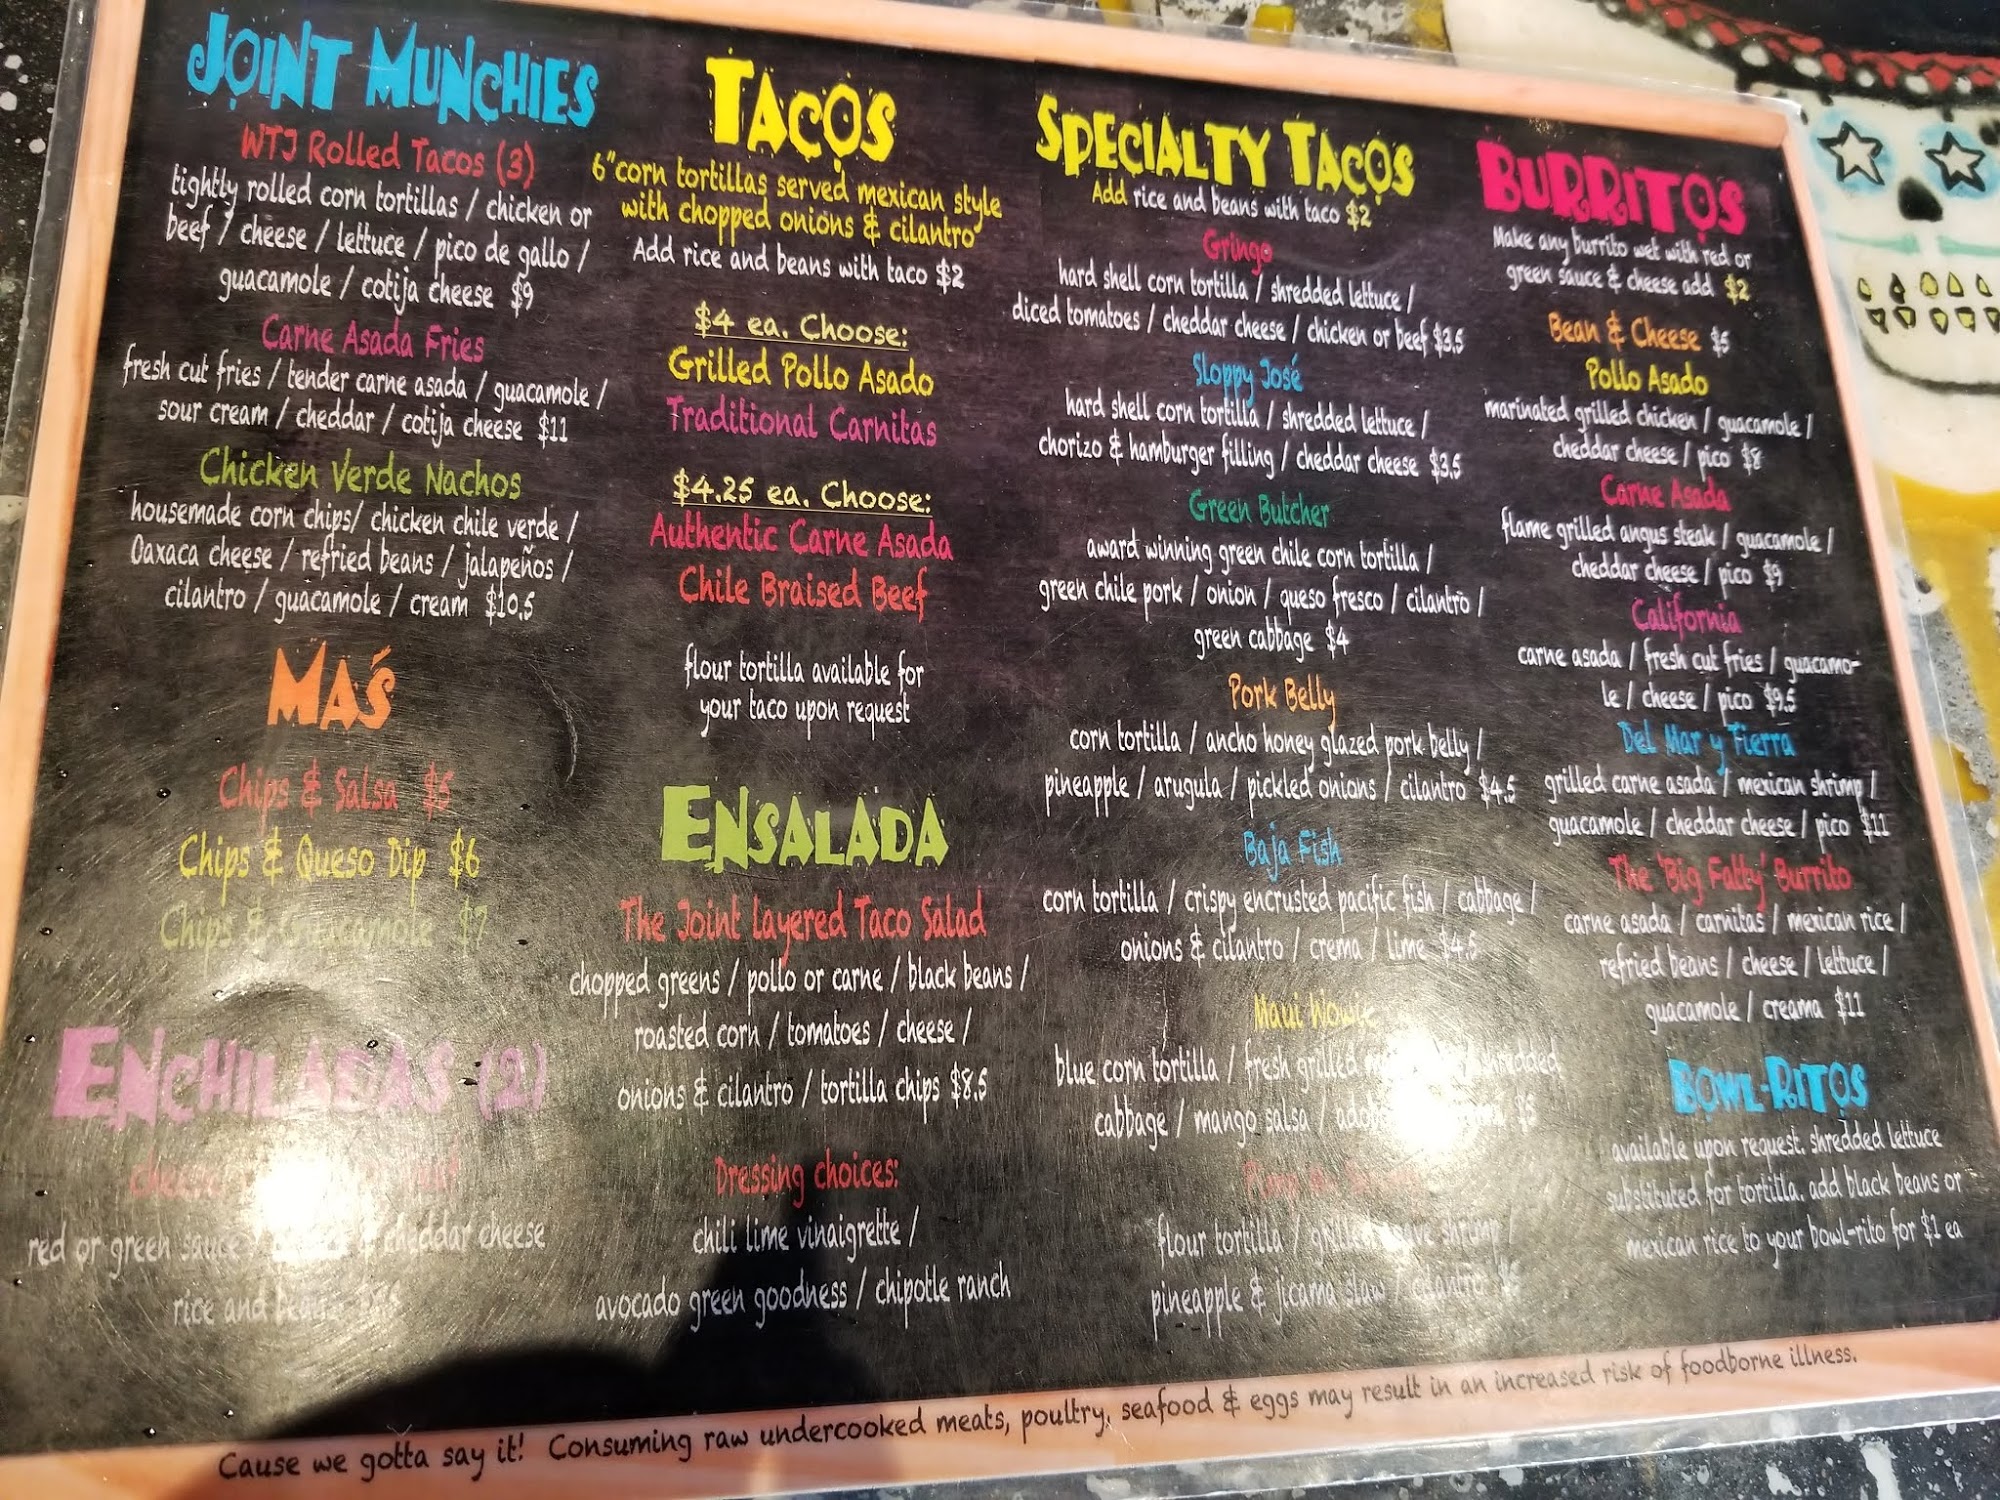 JOINT MUNCHIES
WTJ Rolled Tacos (3)
tightly rolled corn tortillas / chicken or
beef / cheese / lettuce / pico de gallo /
guacamole / cotija cheese $9
Carne Asada Fries
fresh cut fries / tender carne asada / guacamole /
sour cream / cheddar / cotija cheese $11
Chicken Verde Nachos
housemade corn chips/ chicken chile verde /
Oaxaca cheese / refried beans / jalapeños /
cilantro / guacamole / cream $10.5
MAŚ
Chips & Salsa $5
Chips & Queso Dip $6
Chips & Guacamole $7
ENCHILADAS (2)
cheese
red or green sauce / & cheddar cheese
rice and beans
TACOS
6"corn tortillas served mexican style
with chopped onions & cilantro
Add rice and beans with taco $2
$4 ea. Choose:
Grilled Pollo Asado
Traditional Carnitas
$4.25 ea. Choose:
Authentic Carne Asada
Chile Braised Beef
flour tortilla available for
your taco upon request
ENSALADA
The Joint layered Taco Salad
chopped greens / pollo or carne / black beans /
roasted corn / tomatoes / cheese /
onions & cilantro / tortilla chips $8.5
Dressing choices:
chili lime vinaigrette /
avocado green goodness / chipotle ranch
SPECIALTY TACOS
Add rice and beans with taco $2
Gringo
hard shell corn tortilla / shredded lettuce /
diced tomatoes / cheddar cheese / chicken or beef $3.5
Sloppy José
hard shell corn tortilla / shredded lettuce /
chorizo & hamburger filling / cheddar cheese $3.5
Green Butcher
award winning green chile corn tortilla /
green chile pork / onion / queso fresco / cilantro /
green cabbage $4
Pork Belly
corn tortilla / ancho honey glazed pork belly /
pineapple / arugula / pickled onions / cilantro $4.5
Baja Fish
corn tortilla / crispy encrusted pacific fish / cabbage /
onions & cilantro / crema / lime $4.5
Maui Wowie
blue corn tortilla / fresh grilled shredded
cabbage / mango salsa / $5
flour tortilla / grilled shrimp /
pineapple & jicama slaw / cilantro
BURRITOS
Make any burrito wet with red or
green sauce & cheese add $2
Bean & Cheese $5
Pollo Asado
marinated grilled chicken / guacamole /
cheddar cheese / pico $8
Carne Asada
flame grilled angus steak / guacamole /
cheddar cheese / pico $9
California
carne asada / fresh cut fries / guacamo-
le / cheese / pico $9.5
Del Mar y Tierra
grilled carne asada / mexican shrimp /
guacamole / cheddar cheese / pico $11
The 'Big Fatty' Burrito
carne asada / carnitas / mexican rice /
refried beans / cheese / lettuce /
guacamole / creama $11
BOWL-RITOS
available upon request. shredded lettuce
substituted for tortilla. add black beans or
mexican rice to your bowl-rito for $1 ea
Cause we gotta say it! Consuming raw undercooked meats, poultry, seafood & eggs may result in an increased risk of foodborne illness.